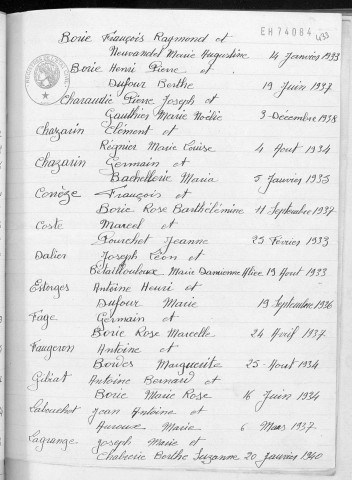 EH 74084 433
Borie François Raymond et
Neuvandel Marie Augustine 14 Janvier 1933
Borie Henri Pierre et
Dufour Berthe 19 Juin 1937
Charaudie Pierre Joseph et
Gauthier Marie Noélie 3 Décembre 1938
Chazarin Clément et
Régnier Marie Louise 4 Aout 1934
Chazarin Germain et
Bachellerie Maria 5 Janvier 1935
Corrèze François et
Borie Rose Barthélémine 11 Septembre 1937
Coste Marcel et
Jeanne 25 Février 1933
Dalier Joseph Léon et
Marie Damienne Alice 19 Aout 1933
Estorges Antoine Henri et
Dufour Marie 19 Septembre 1936
Fage Germain et
Borie Rose Marcelle 24 Avril 1937
Faugeron Antoine et
Bordes Marguerite 25 Aout 1934
Gibiat Antoine Bernard et
Borie Marie Rose 16 Juin 1934
Labouchet Jean Antoine et
Marie 6 Mars 1937
Lagrange Joseph Marie et
Chabrerie Berthe Suzanne 20 Janvier 1940